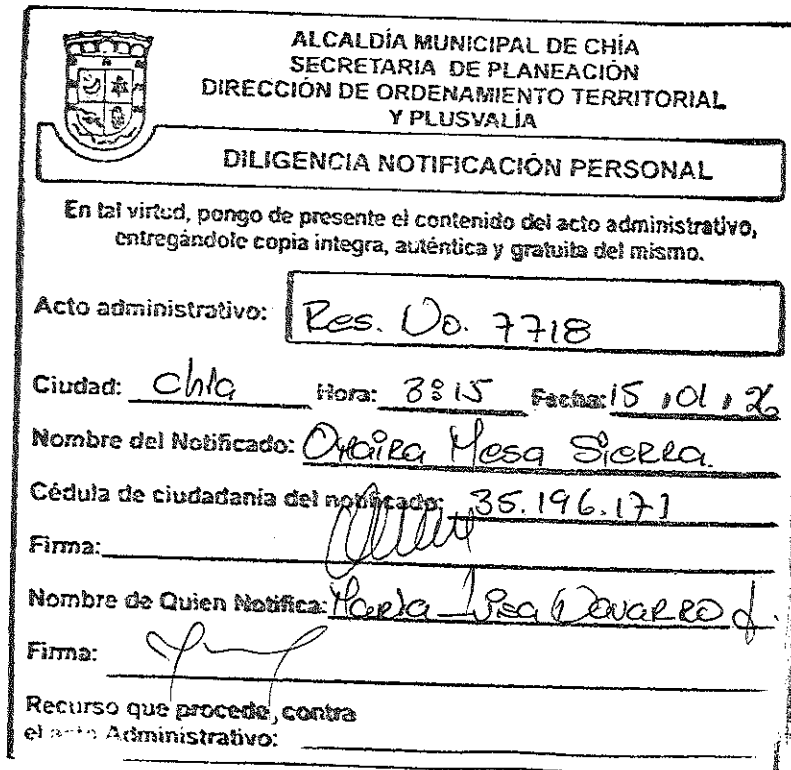 ALCALDÍA MUNICIPAL DE CHÍA
SECRETARIA DE PLANEACIÓN
DIRECCIÓN DE ORDENAMIENTO TERRITORIAL
Y PLUSVALÍA
DILIGENCIA NOTIFICACIÓN PERSONAL
En tal virtud, pongo de presente el contenido del acto administrativo,
entregándole copia integra, auténtica y gratuita del mismo.
Acto administrativo: Res. No. 7718
Ciudad: Chía Hora: 3:15 Fecha: 15 / 01 / 26
Nombre del Notificado: Oraira Mesa Sierra.
Cédula de ciudadanía del notificado: 35.196.171
Firma:
Nombre de Quien Notifica: María Luisa Navarro
Firma:
Recurso que procede, contra
el acto Administrativo: